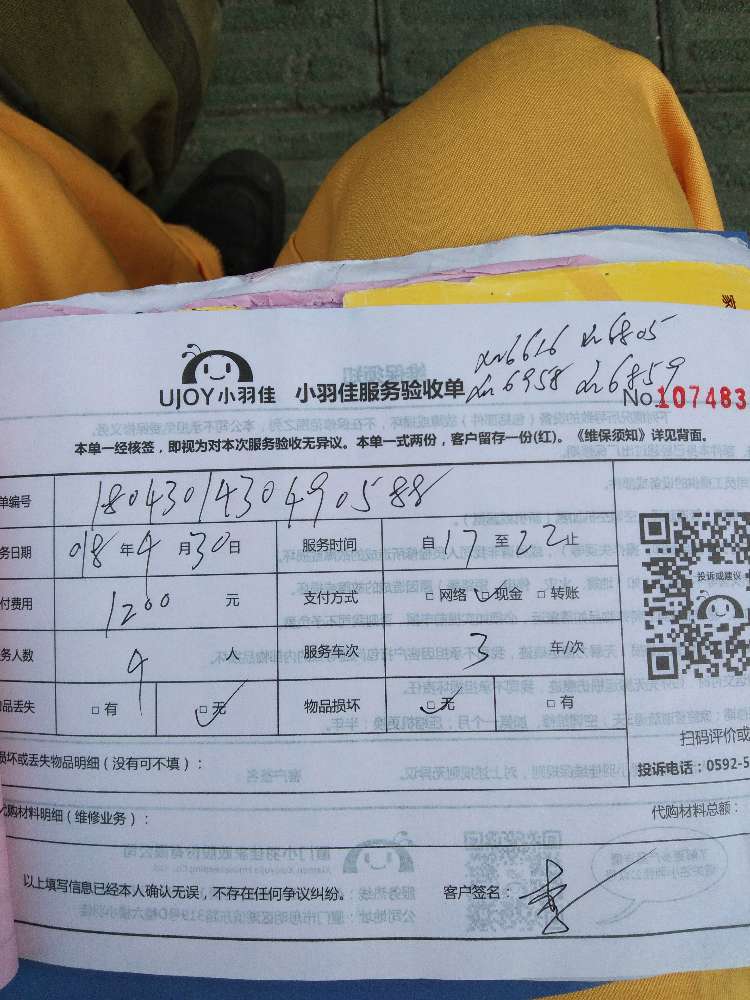 xm6616 xm6805
xm6958 xm6859
UJOY小羽佳 小羽佳服务验收单 No.107483
本单一经核签，即视为对本次服务验收无异议。本单一式两份，客户留存一份(红)。《维保须知》详见背面。
单编号 18043014304490588
务日期 018年4月30日 服务时间 自17至22止
付费用 1200元 支付方式 □网络 □现金 □转账
务人数 4人 服务车次 3车/次
品丢失 □有 □无 物品损坏 □无 □有
投诉或建议
扫码评价或
投诉电话：0592-5
损坏或丢失物品明细（没有可不填）：
代购材料明细（维修业务）： 代购材料总额：
以上填写信息已经本人确认无误，不存在任何争议纠纷。 客户签名：